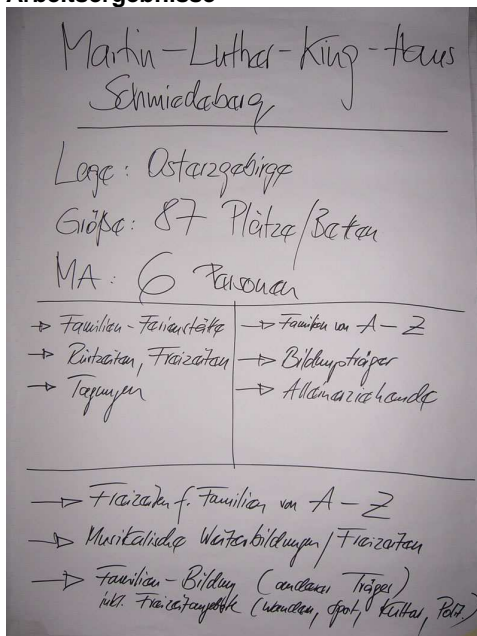 Arbeitsergebnisse
Martin-Luther-King-Haus
Schmiedeberg
Lage: Osterzgebirge
Größe: 87 Plätze/Betten
MA: 6 Personen
→ Familien-Ferienstätte
→ Rüstzeiten, Freizeiten
→ Tagungen
→ Familien von A-Z
→ Bildungsträger
→ Alleinerziehende
→ Freizeiten f. Familien von A-Z
→ Musikalische Weiterbildungen/Freizeiten
→ Familien-Bildung (anderer Träger)
inkl. Freizeitangebote (wandern, Sport, Kultur, Polit.)